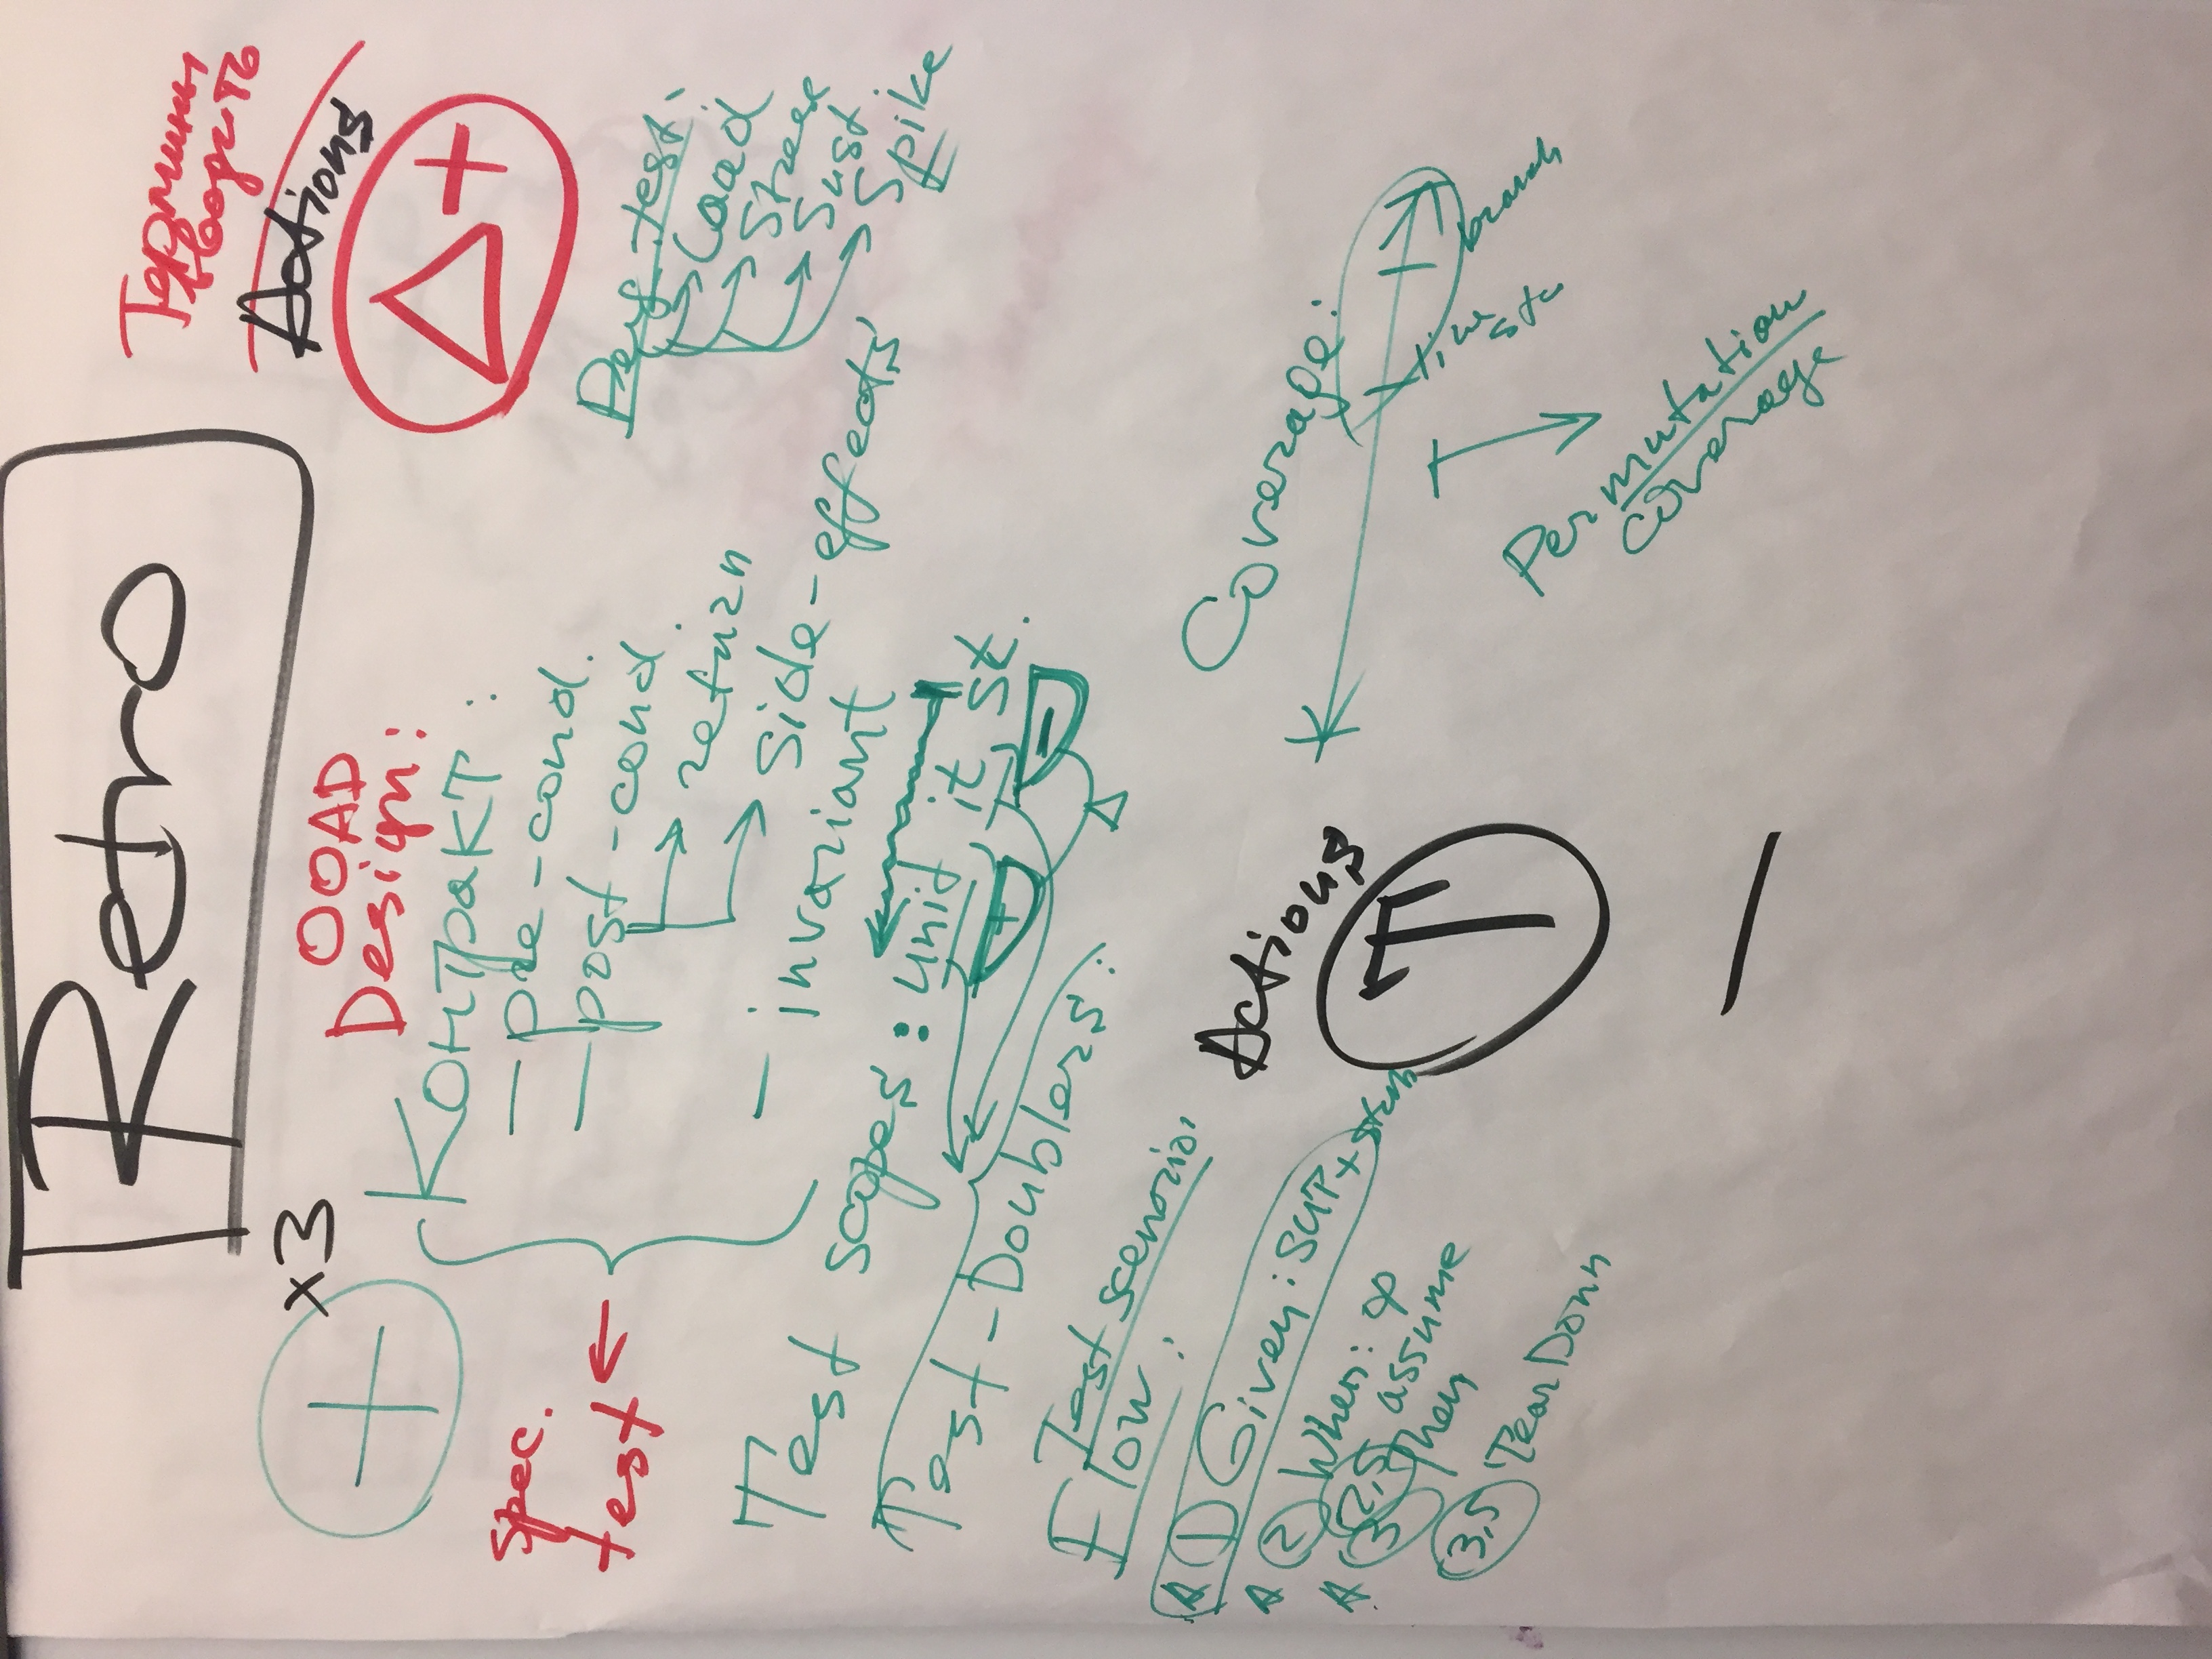 Retro
Термины
вводить
Actions
Δ+
+
x3
OOAD
Design:
Контракт:
- pre-cond.
- post-cond.
return
side-effects
- invariant
spec.
test
Perf test:
Load
Stress
Sust.
Spike
Test scopes: unit it st.
+ -
Test-Doublers:
Test scenario:
Flow:
A 1 Given: SUT + stub
A 2 When: op
2,5 assume
A 3 Then
3,5 TearDown
Actions
T
—
Coverage:
line
branch
Permutation
coverage